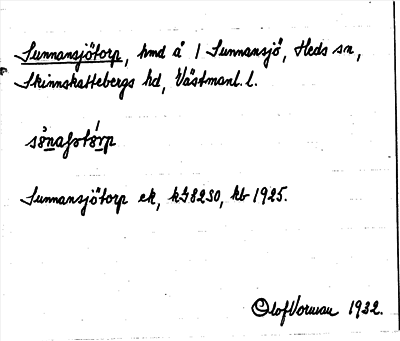 Sunnansjötorp, hmd å 1 Sunnansjö, Heds sn,
Skinnskattebergs hd, Västmanl. l.
Sunnansjötorp ek, kb 1925.
Olof Vorman 1932.